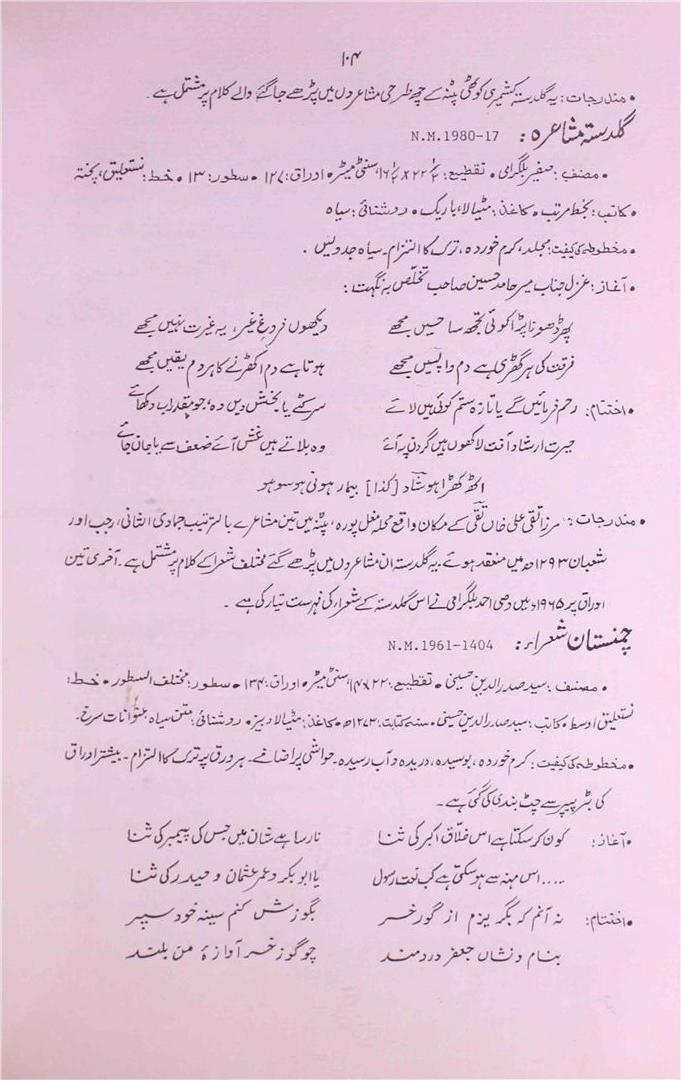 ۱۰۴
• مندرجات: یہ گلدستہ کشمیری کوٹھی پٹنہ کے چھ طرحی مشاعروں میں پڑھے جا گئے والے کلام پر مشتمل ہے۔
گلدستہ مشاعرہ: N.M.1980-17
• مصنف: صفیر بلگرامی • تقطیع: ۲۲/۲ × ۱۶/۲ سنٹی میٹر • اوراق: ۱۲۷ • سطور: ۱۳ • خط: نستعلیق، پختہ
• کاتب: بخط مرتب • کاغذ: مٹیالا، باریک • روشنائی: سیاہ
• مخطوطہ کی کیفیت: مجلد، کرم خوردہ، ترک کا التزام۔ سیاہ جدولیں ۔
• آغاز: غزل جناب میر حامد حسین صاحب تخلّص بہ نگہت:
پھر ڈھونا پڑا کوئی تجھ سا حسیں مجھے دیکھوں فروغِ غیر، یہ غیرت نہیں مجھے
فرقت کی ہر گھڑی ہے دم واپسیں مجھے ہوتا ہے دم اکھڑنے کا ہر دم یقیں مجھے
• اختتام: رحم فرمائیں گے یا تازہ ستم کوئی ہیں لائے سر کٹے یا بخش دیں وہ، جو مقدر اب دکھائے
حیرت ارشاد آفت لاکھوں ہیں گردن پہ آئے وہ بلاتے ہیں غش آئے ضعف سے یا جان جائے
اٹھ کھڑا ہو شاد [کذا] بیمار ہونی ہو سو ہو
• مندرجات: مرزا تقی علی خاں تقی کے مکان واقع محلہ مغل پورہ، پٹنہ میں تین مشاعرے بالترتیب جمادی الثانی، رجب اور
شعبان ۱۲۹۳ھ میں منعقد ہوئے۔ یہ گلدستہ ان مشاعروں میں پڑھے گئے مختلف شعرا کے کلام پر مشتمل ہے۔ آخری تین
اوراق پر ۱۹۶۵ء میں وصی احمد بلگرامی نے اس گلدستہ کے شعرار کی فہرست تیار کی ہے ۔
چمنستان شعراء: N.M.1961-1404
• مصنف: سید صدر الدین حسینی • تقطیع: ۲۲ × ۱۴ سنٹی میٹر • اوراق: ۱۳۴ • سطور: مختلف السطور • خط:
نستعلیق اوسط • کاتب: سید صدر الدین حسینی • سنہ کتابت: ۱۲۷۳ھ • کاغذ: مٹیالا دبیز • روشنائی: متن سیاہ، عنوانات سرخ۔
• مخطوطہ کی کیفیت: کرم خوردہ، بوسیدہ، دریدہ و آب رسیدہ۔ حواشی پر اضافے۔ ہر ورق پر ترک کا التزام۔ بیشتر اوراق
کی بٹر پیپر سے چٹ بندی کی گئی ہے۔
• آغاز: کون کر سکتا ہے اس خلّاق اکبر کی ثنا نارسا ہے شان میں جس کی پیمبر کی ثنا
.... اس مہنہ سے ہو سکتی ہے کب نعت رسول یا ابوبکر و عمر عثمان و حیدر کی ثنا
• اختتام: نہ آنم کہ بگریزم از گور خر بگوزش کنم سینہ خود سپر
بنام و نشاں جعفر دردمند چو گوز خر آوازۂ من بلند